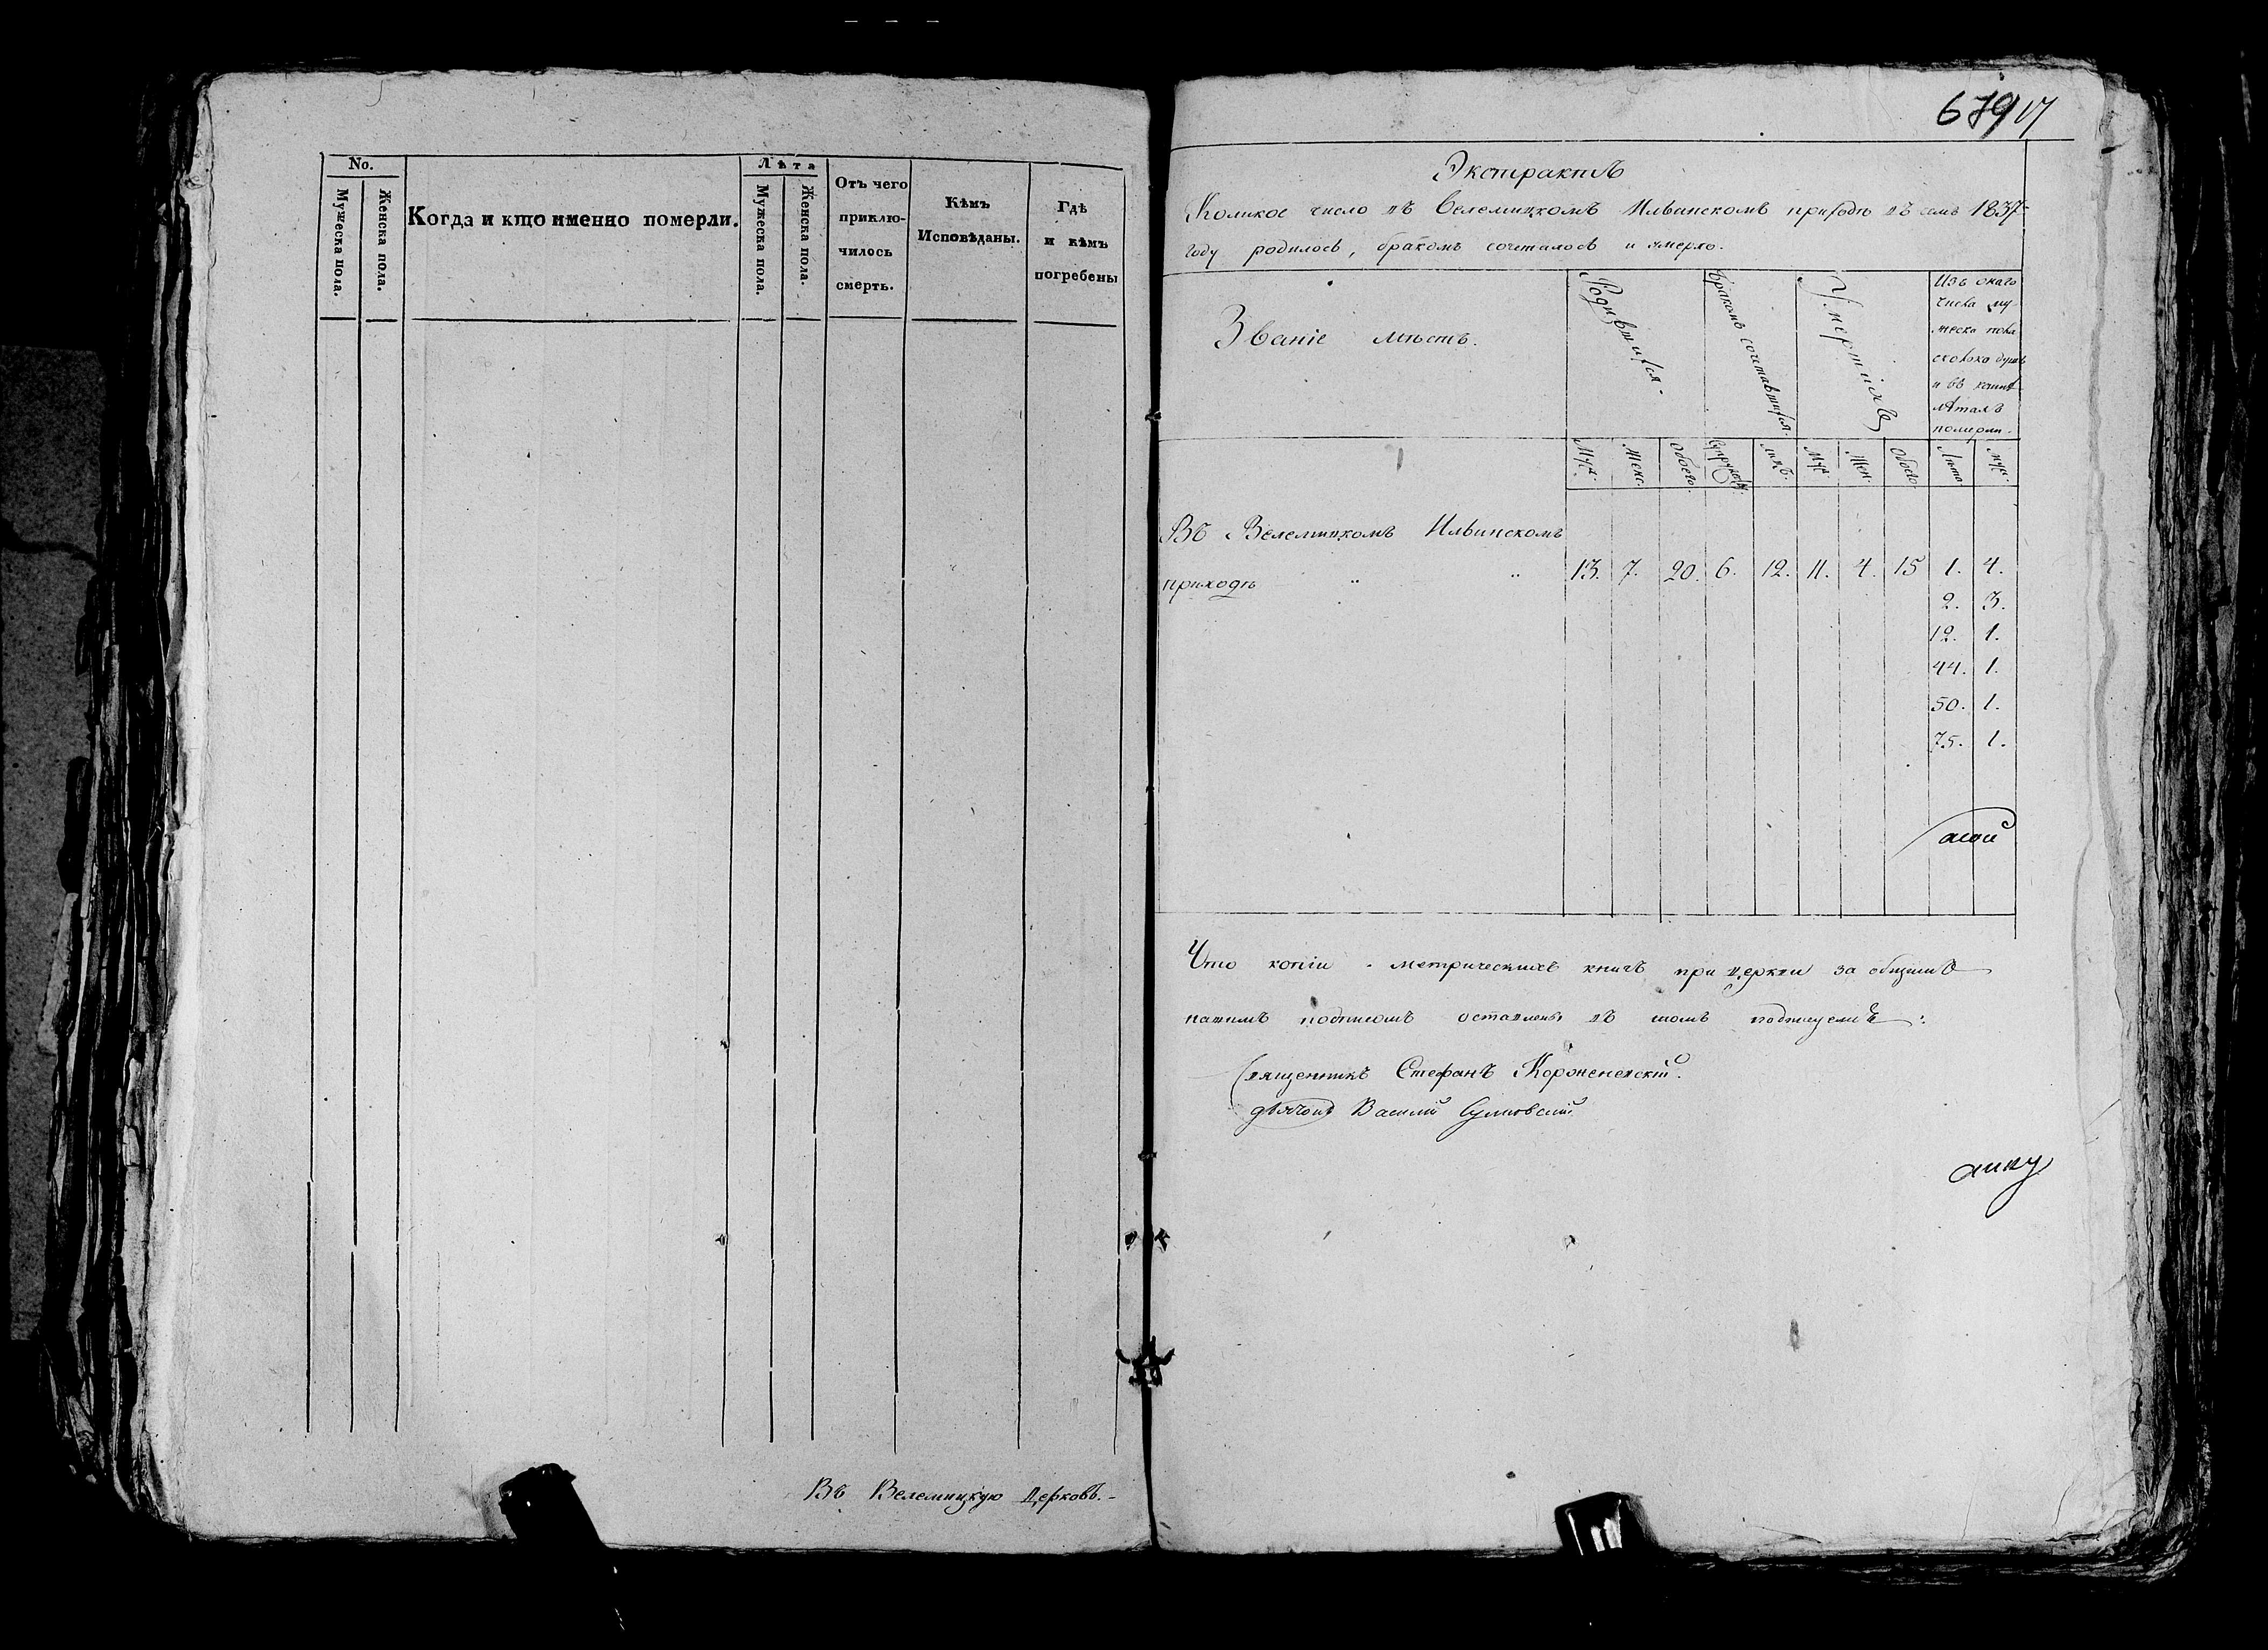 No.
Лѣта
Мужеска пола.
Женска пола.
Когда и кто именно померли.
Мужеска пола.
Женска пола.
Отъ чего
приклю-
чилось
смерть.
Кѣмъ
Исповѣданы.
Гдѣ
и кѣмъ
погребены
Въ Велемицкую Церковь.-
679 17
Экстрактъ
Коликое число въ Велемицкомъ Ильинскомъ приходѣ въ семъ 1837
году родилось, бракомъ сочеталось и умерло.
Званіе мѣстъ.
Родившихся.
Бракомъ сочетавшихся.
Умершихъ
Изъ онаго
числа му-
жеска пола
сколько душъ
и въ коихъ
лѣтахъ
померли.
Муж.
Женс.
Обоего.
Лицъ.
Муж.
Жен.
Обоего.
Лѣта
муж.
Въ Велемицкомъ Ильинскомъ
приходѣ " " 13. 7. 20. 6. 12. 11. 4. 15 1. 4.
2. 3.
12. 1.
44. 1.
50. 1.
75. 1.
Что копіи метрическихъ книгъ при церкви за общимъ
нашимъ подписомъ оставлены въ томъ подписуемся:
Священникъ Стефанъ
дьячокъ Василій